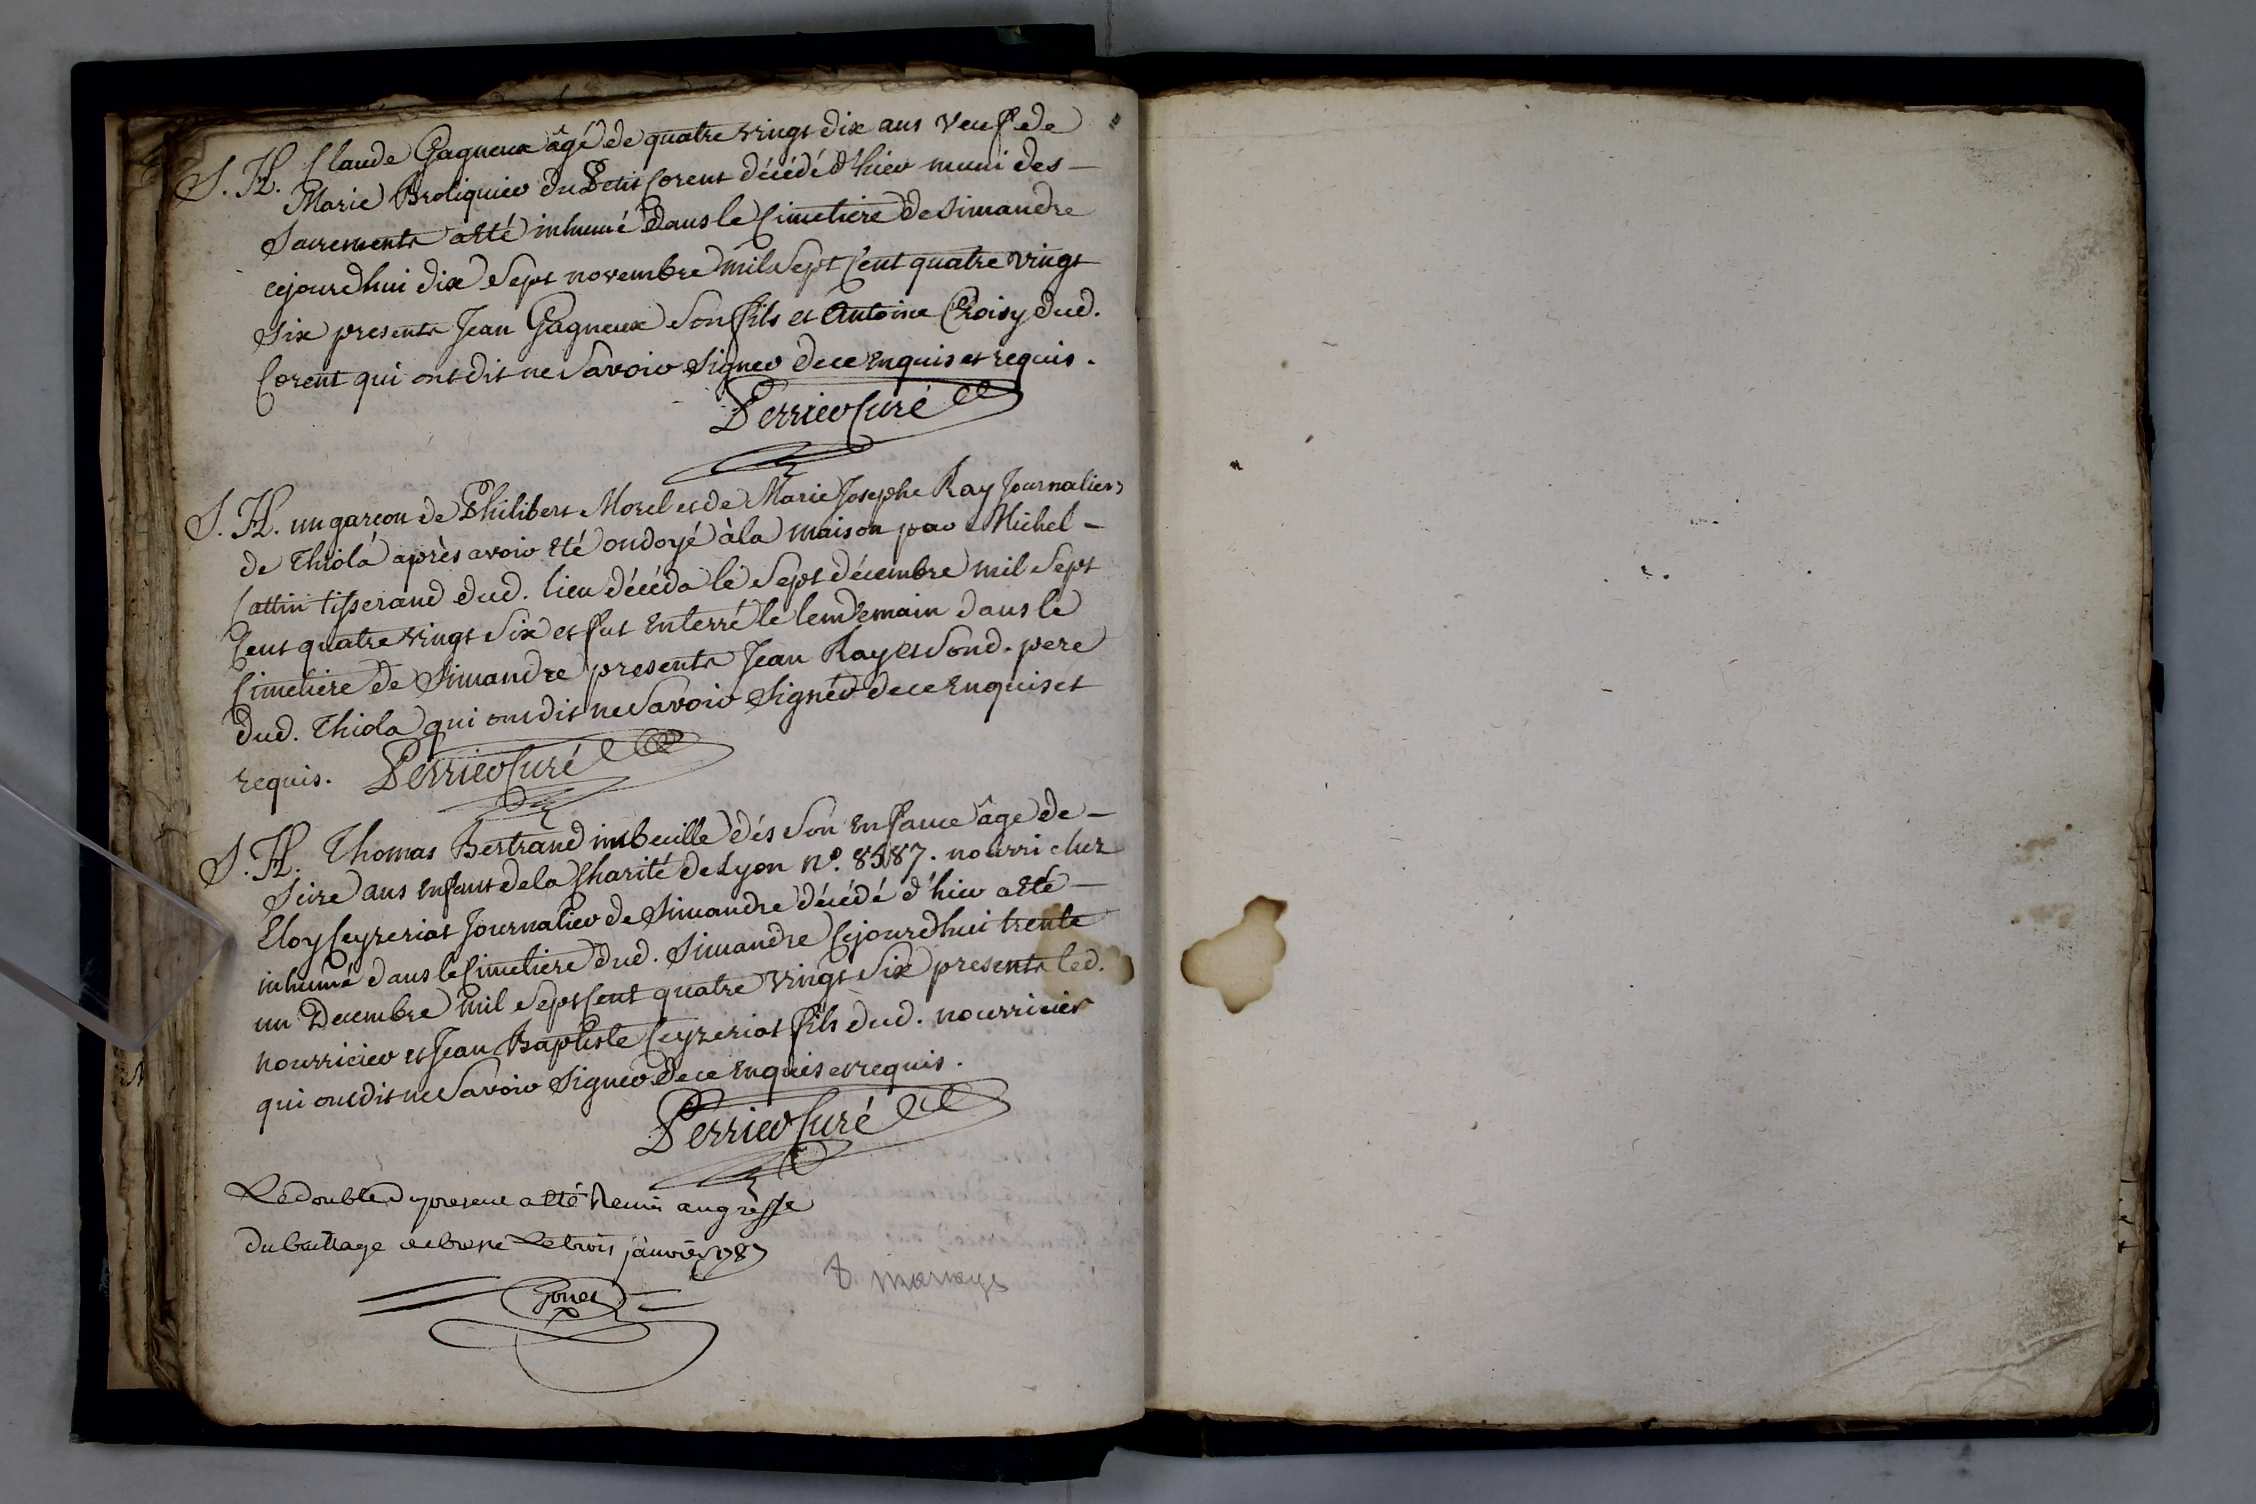 S. H. Claude Gagneux âgé de quatre vingt dix ans veuf de
Marie Broliquier du Petit Corent décédé d'hier muni des
Sacrements a été inhumé dans le Cimetiere de Simandre
cejourdhui dix Sept novembre mil Sept Cent quatre vingt
Six presents Jean Gagneux Son fils et Antoine Choisy dud.
Corent qui ont dit ne Savoir Signer de ce Enquis et requis.
Perrier Curé
S. H. un garcon de Philibert Morel et de Marie Josephe Ray Journaliers
de Thiola après avoir été ondoyé à la maison par Michel
Cattin tisserand dud. lieu décéda le Sept décembre mil Sept
Cent quatre vingt Six et fut Enterré le lendemain dans le
Cimetiere de Simandre presents Jean Ray et Sond. pere
dud. Thiola qui ont dit ne Savoir Signer de ce Enquis et
requis. Perrier Curé
S. H. Thomas Bertrand imbecille dés Son Enfance âge de
Seize ans Enfant de la Charité de Lyon N°. 8587. nourri chez
Eloy Ceyzeriat Journalier de Simandre décédé d'hier a été
inhumé dans le Cimetiere dud. Simandre Cejourdhui trente
un Decembre mil Sept Cent quatre vingt Six presents led.
nourricier et Jean Baptiste Ceyzeriat fils dud. nourricier
qui ont dit ne Savoir Signer de ce Enquis et requis.
Perrier Curé
Le double du present a été Remis au greffe
du bailliage de bresse Le trois janvier 1787
Gonet
8 mariages